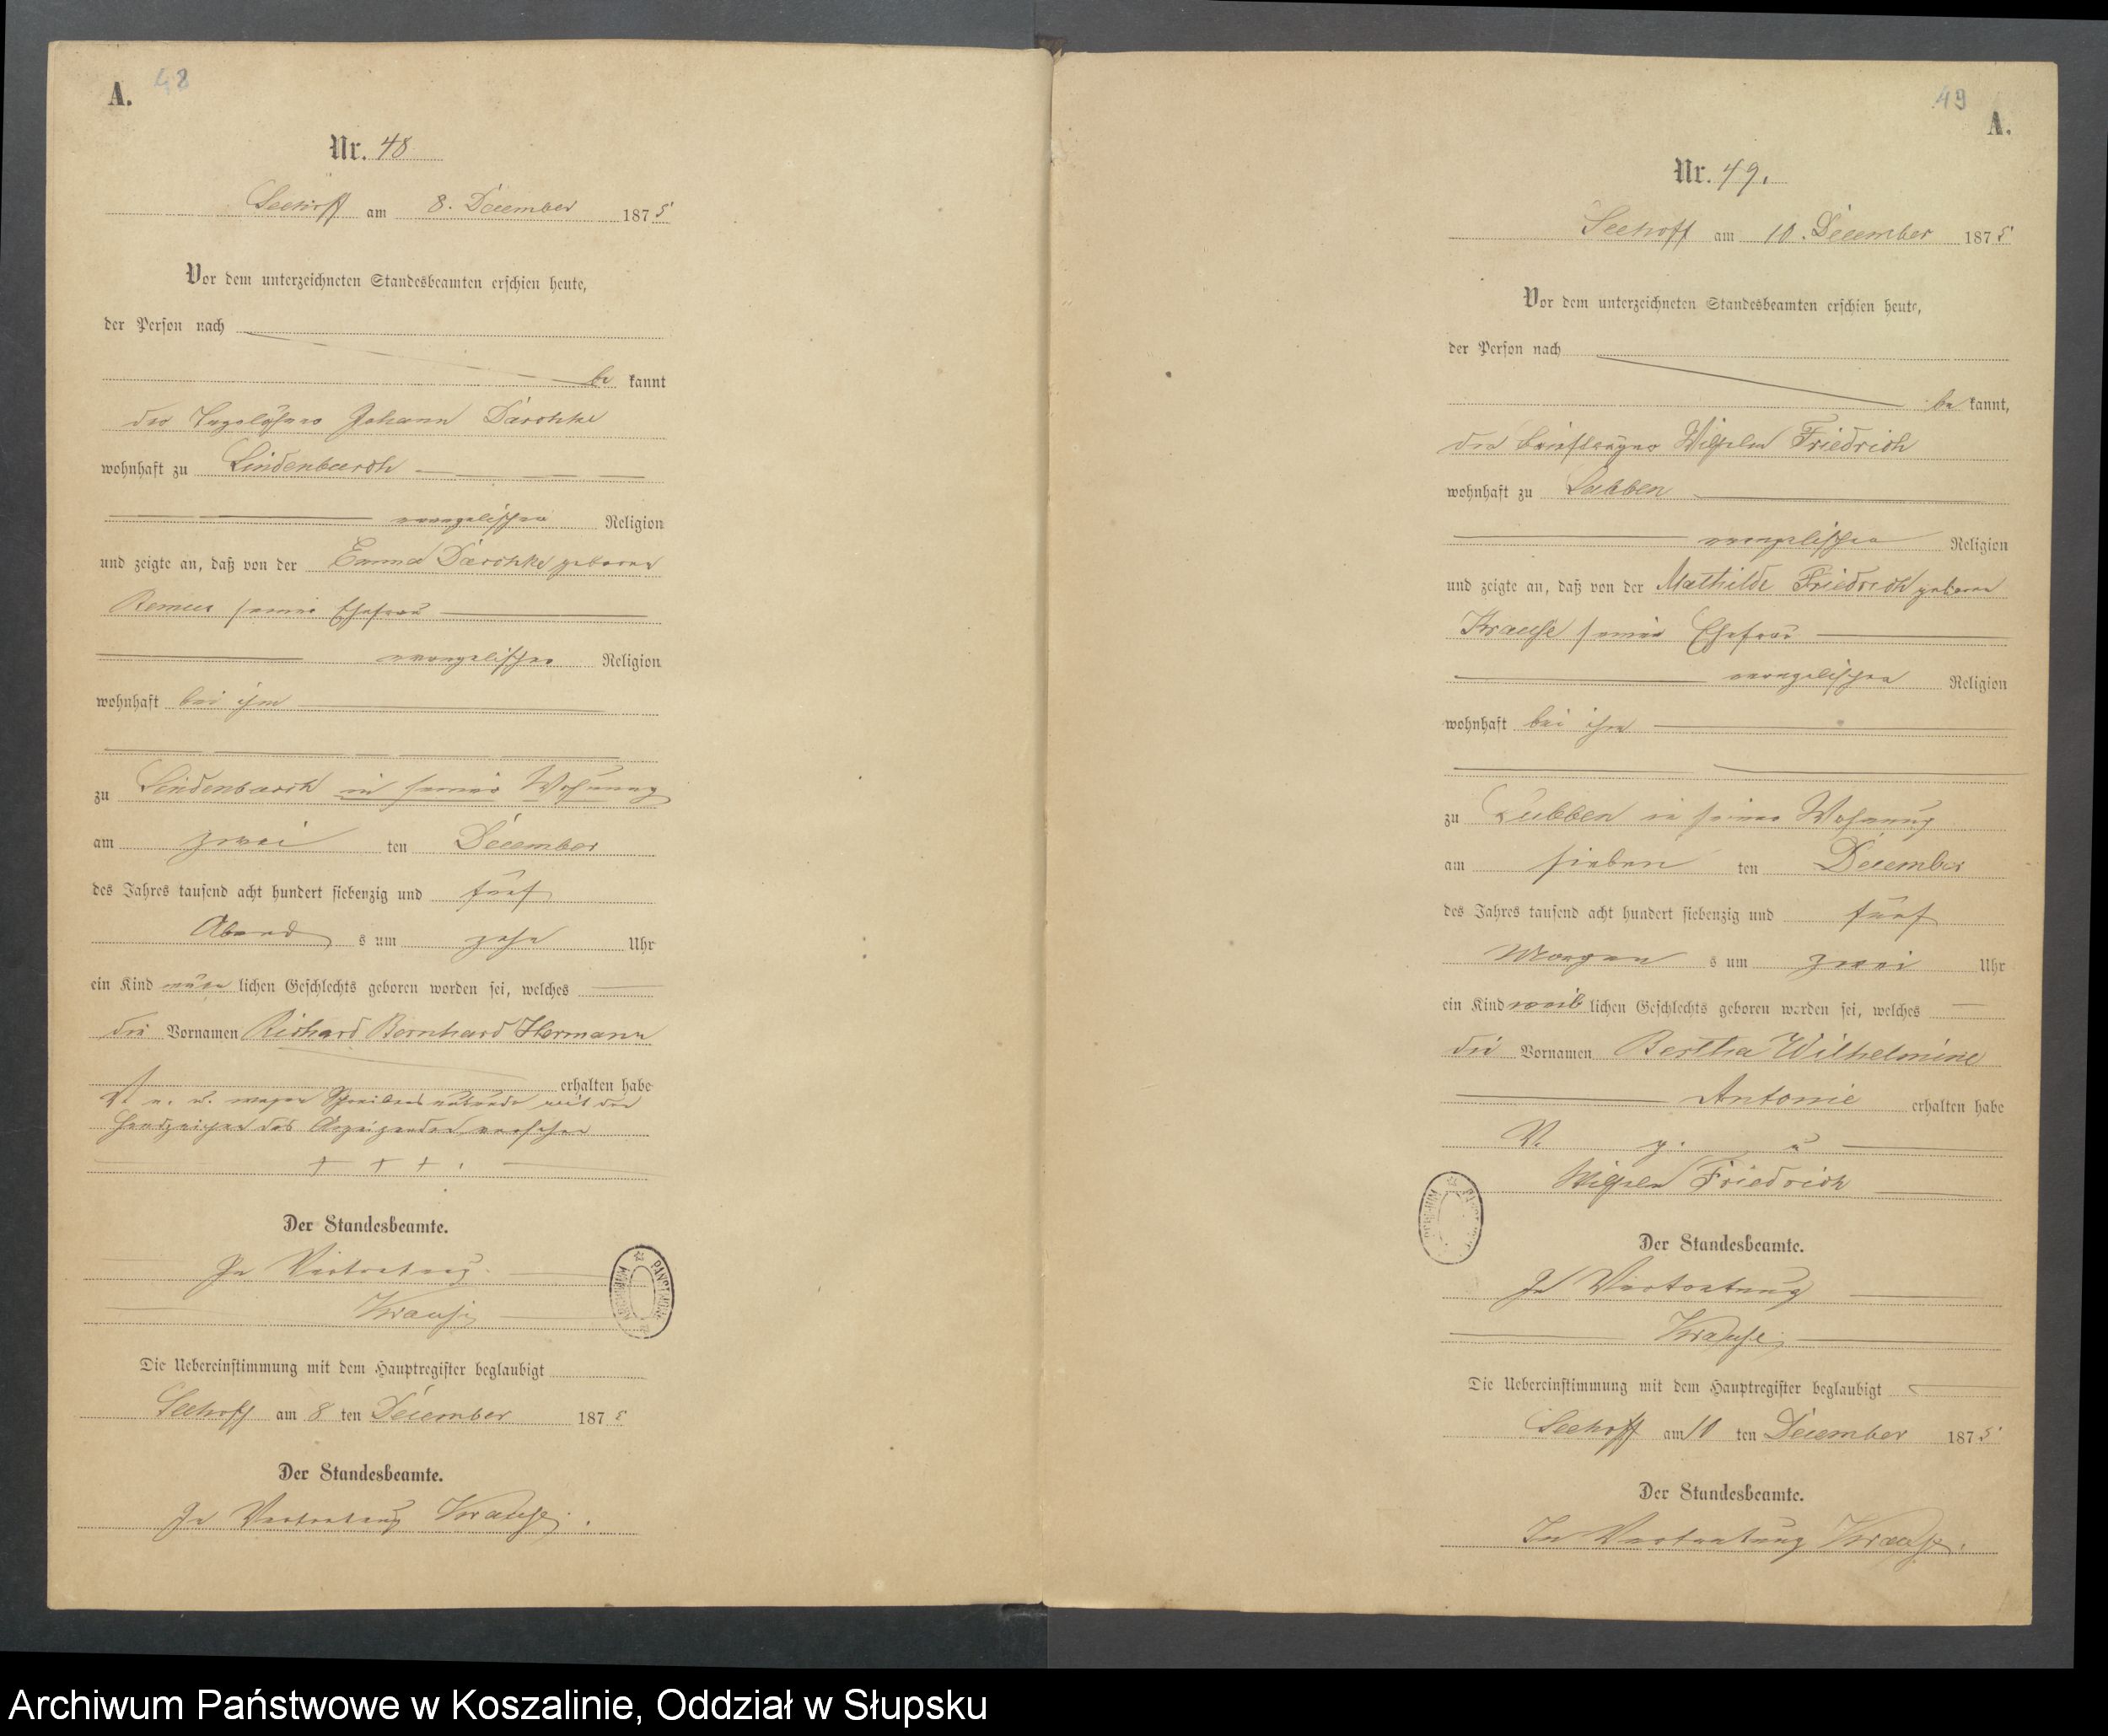 A. 48
Nr. 48
Seehoff am 8. December 1875
Vor dem unterzeichneten Standesbeamten erschien heute,
der Person nach
be kannt
der Tagelöhner Johann Darchke
wohnhaft zu Lindenbusch
evangelischer Religion
und zeigte an, daß von der Emma Darchke geborne
Remus seiner Ehefrau
evangelischer Religion
wohnhaft bei ihm
zu Lindenbusch in seiner Wohnung
am zwei ten December
des Jahres tausend acht hundert siebenzig und fünf
Abend s um zehn Uhr
ein Kind män lichen Geschlechts geboren worden sei, welches
die Vornamen Richard Bernhard Hermann
erhalten habe
V. u. w. wegen Schreibens mit den
Handzeichen des Anzeigenden versehen
+ + +.
Der Standesbeamte.
In Vertretung
Krause
Die Uebereinstimmung mit dem Hauptregister beglaubigt
Seehoff am 8 ten December 1875
Der Standesbeamte.
In Vertretung Krause.
49
A.
Nr. 49.
Seehoff am 10. December 1875
Vor dem unterzeichneten Standesbeamten erschien heute,
der Person nach
be kannt,
der Briefträger Wilhelm Friedrich
wohnhaft zu Lubben
evangelischer Religion
und zeigte an, daß von der Mathilde Friedrich geborne
Krause seiner Ehefrau
evangelischer Religion
wohnhaft bei ihm
zu Lubben in seiner Wohnung
am sieben ten December
des Jahres tausend acht hundert siebenzig und fünf
Morgen s um zwei Uhr
ein Kind weib lichen Geschlechts geboren worden sei, welches
die Vornamen Bertha Wilhelmine
Antonie erhalten habe
V. g. u
Wilhelm Friedrich
Der Standesbeamte.
In Vertretung
Krause
Die Uebereinstimmung mit dem Hauptregister beglaubigt
Seehoff am 10 ten December 1875
Der Standesbeamte.
In Vertretung Krause.
Archiwum Państwowe w Koszalinie, Oddział w Słupsku